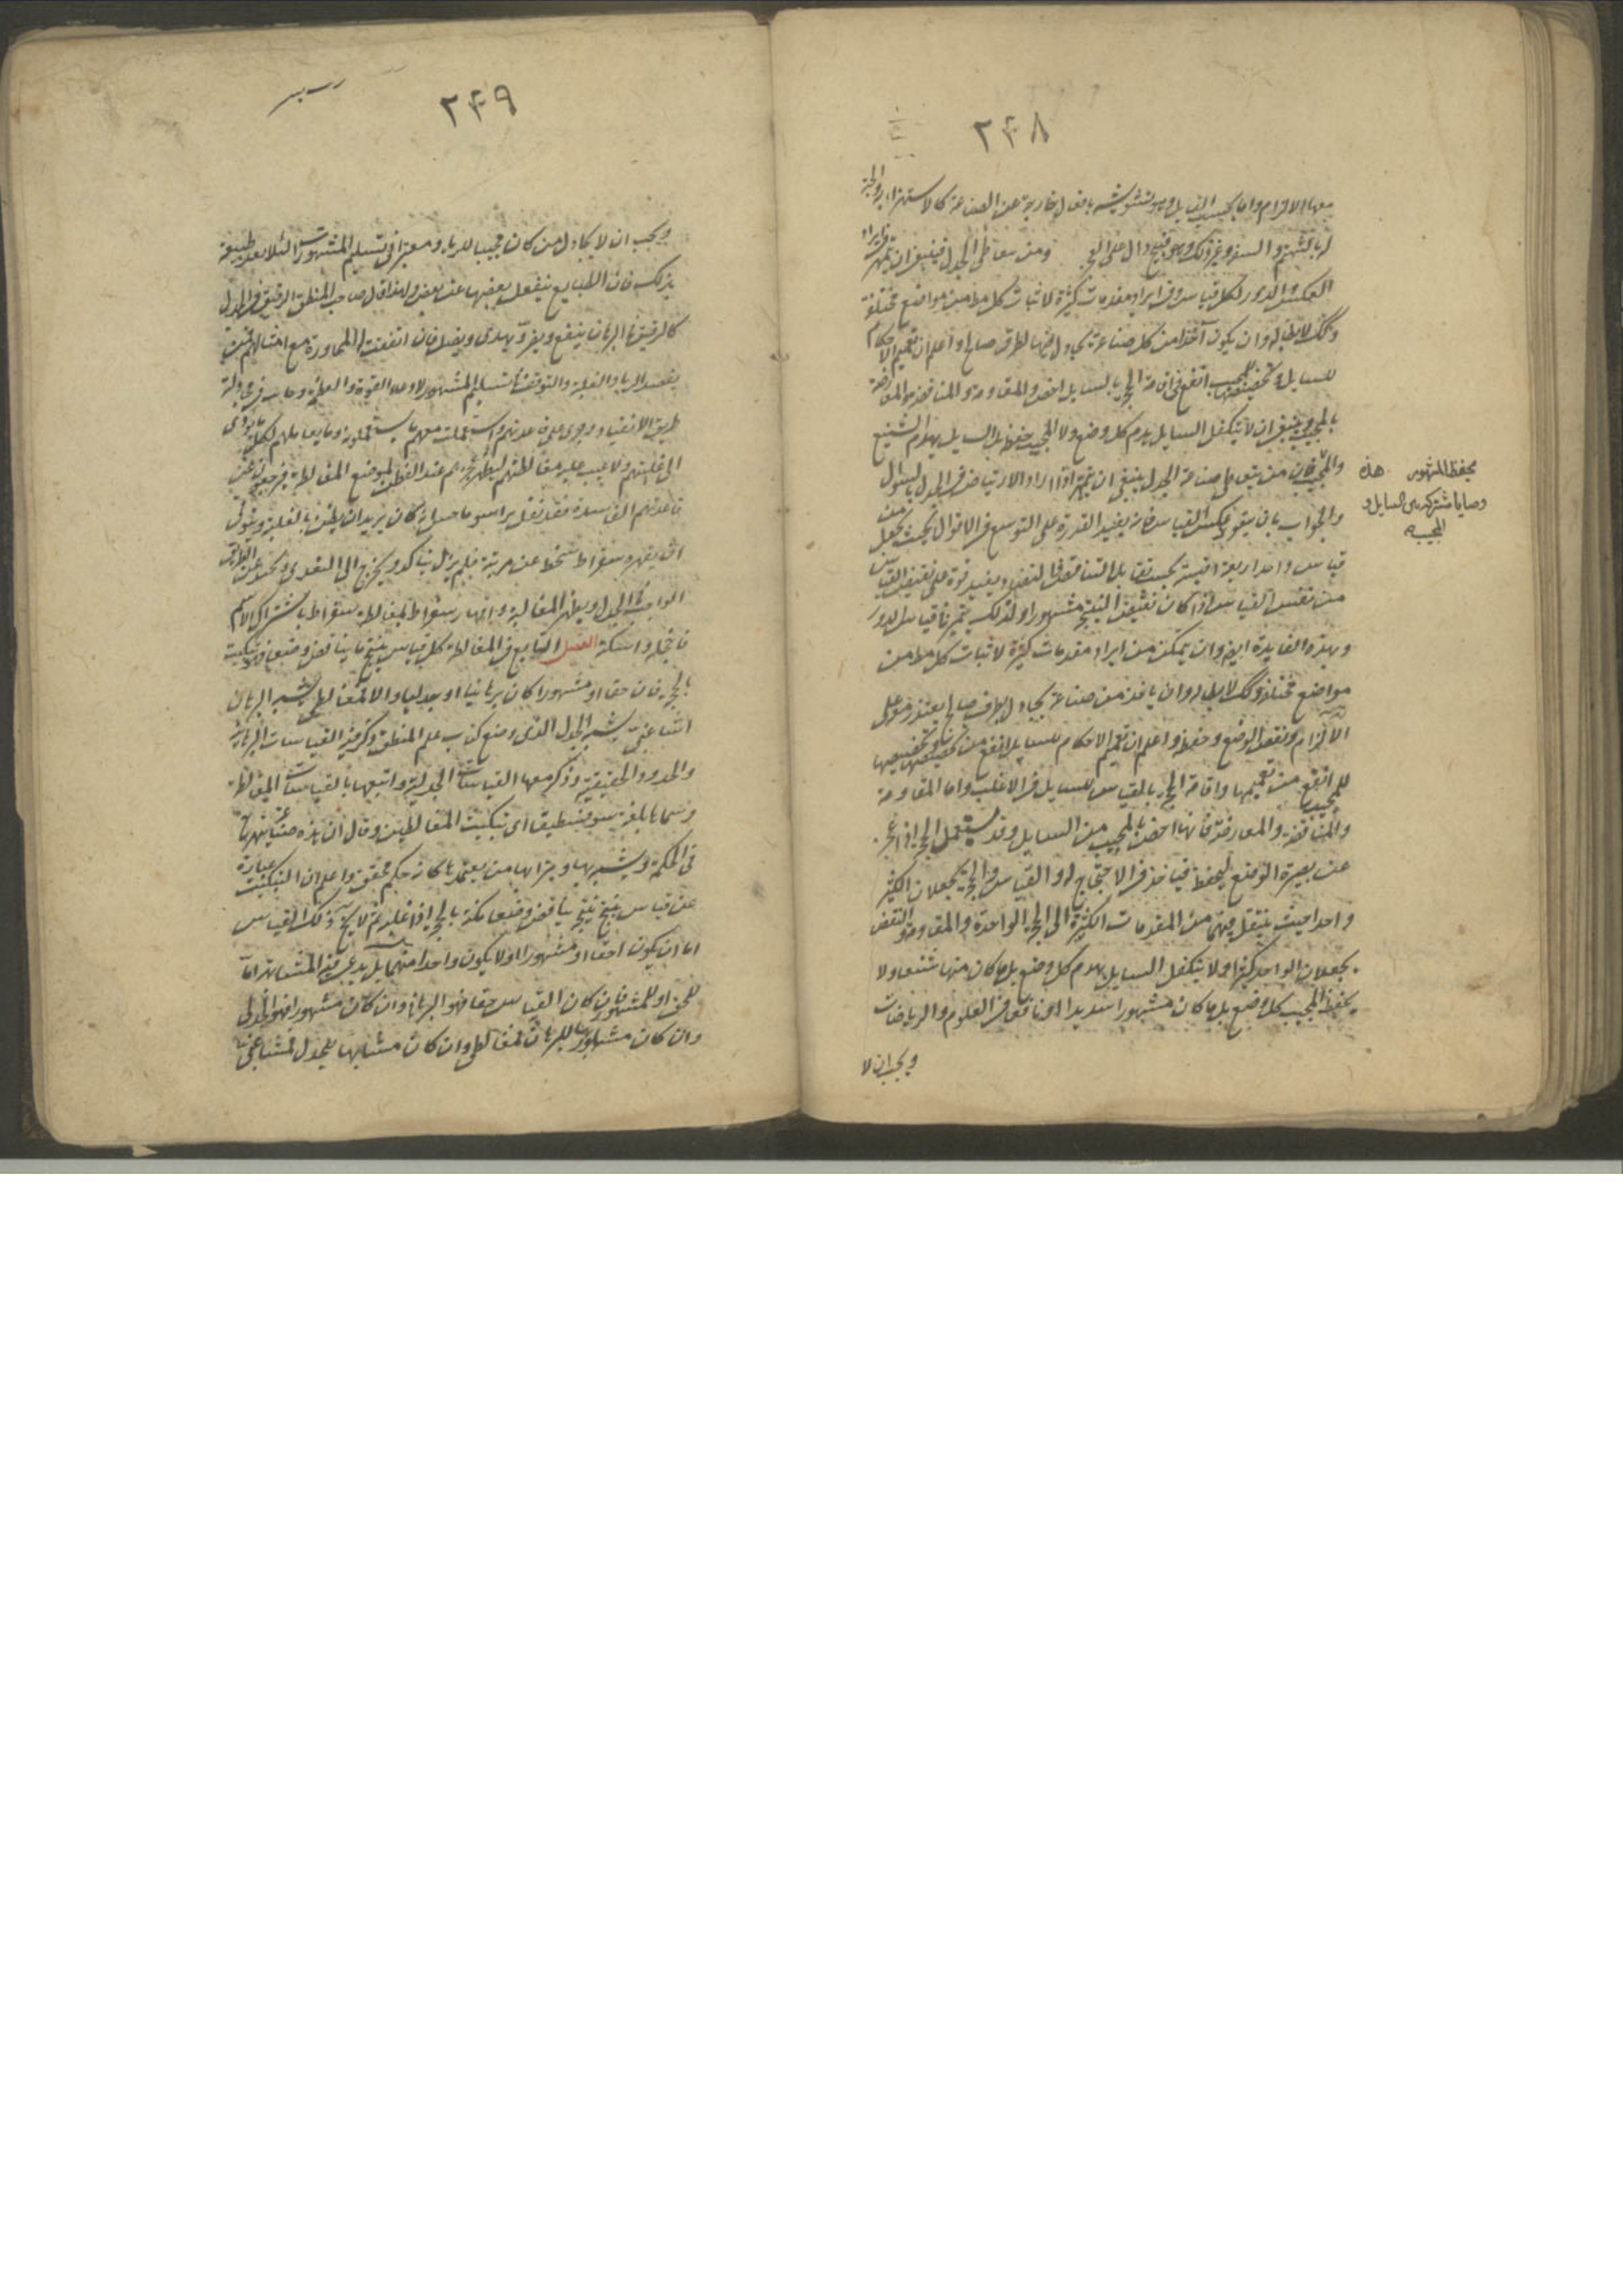 ٢۴٨
معها الالزام واما بحسب القايل وهو تشويشه بافعال خارجة عن الصناعة كالاستهزاء به والجبه
له بالشتم والسفه وغير ذلك وهو قبيح دال على العجز ومن يتعاطى الجدل فينبغي ان يتمهر في ايراد
العكس والدور لكل قياس وفي ايراد مقدمات كثيرة لاثبات كل مطلب من مواضع مختلفة
وكك لابطاله وان يكون آخذا من كل صناعة يجادل فيها لطرف صالح واعلم ان تعميم الاحكام
للسايل وتخصيصها للمجيب انفع في اقامة الحجة بالسايل اخص والمقاومة والمناقضة والمعارضة
بالمجيب وينبغي ان لا يتكفل السايل هدم كل وضع ولا المجيب حفظه بل السايل يهدم الشنيع
والمجيب فان من يتعاطى صناعة الجدل ينبغي ان يتمهر اذا اراد الارتياض في الجدل بالسئوال
والجواب بان يتعود عكس القياس فانه يفيد القدرة على التوسع في الاقوال بحيث يجعل من
قياس واحد اربعة اقيسة بحسب تقابل التناقض والتضاد ويفيد قوة على نقيض القياس
من نفس القياس اذا كان نقيض النتيجة مشهورا ولذلك يتمهر في اقياس الدور
وبهذه الفايدة ايضا وان يتمكن من ايراد مقدمات كثيرة لاثبات كل مطلب من
مواضع مختلفة وكك لابطاله وان ياخذ من صناعة يجادل بطرف صالح يقتدر منه على
الالزام ونقض الوضع وحفظه واعلم ان تعميم الاحكام للسايل انفع من تخصيصها وتخصيصها
للمجيب انفع من تعميمها واقامة الحجة بالقياس للسايل في الاغلب واما المقاومة
والمناقضة والمعارضة فانها اخص بالمجيب من السايل وقد يستعمل الحجة اذا عجز
عن نصرة الوضع ليحفظ فياخذ في الاحتجاج له والقياس والحجة يجعلان الكثير
واحدا حيث ينتقل فيهما من المقدمات الكثيرة الى الحجة الواحدة والمقاومة والنقض
يجعلان الواحد كثيرا ولا يتكفل السايل بهدم كل وضع بل ما كان منها شنعا ولا
يحفظ المجيب كل وضع بل ما كان مشهورا سديدا او نافعا في العلوم والرياضات
ويجب ان لا
يحفظ المشهور هذه
وصايا مشتركة بين السايل و
المجيب
٢۴٩
ويجب ان لا يجادل من كان محبا للرياء ومعتزا في تسليم المشهورات لئلا يتعود طبيعته
بذلك فان الطبايع ينفعل بعضها عن بعض ولهذا قال صاحب المنطق الرفيق في الجدل
كالرفيق في البرهان ينفع ويضر ويهدى ويضل فان اتفقت المحاورة مع امثالهم ممن
يقصد الرياء والغلبة والتوقف في تسليم المشهور لادعاء القوة والعظمة وجانب في مجادلته
طريق الانقياد وجرى على قاعدتهم واستعملت معهم ما يستعملونه وما يعاملهم لكل ما يؤدى
الى غلبتهم ولا عيب عليه مغالطتهم ليظهر عجزهم عند الفطن لموضع المغالطة فيرجعون عن
قاعدتهم الفاسدة فقد نقل براسوماخس انه كان يريد ان يظفر بالغلبة ويتوخى
ان يقهر سقراط ليحط عن مرتبته فلم يزل يناكد ويخرج الى التعدى ويحيد عن الطريق
الواجب في الجدل ويظهر المغالبة وانهار سقراط بمغالطة سقراط باشتراك الاسم
فاخجله واسكته الفصل التابع في المغالطة كل قياس ينتج ما يناقض وضعا فهو تبكيت
بالحجة فان حقا او مشهورا كان برهانيا او جدليا والا فمغالطى يشبه البرهان
اشاغبى يشبه الجدل الذى وضع كتاب علم المنطق وذكر فيه القياسات البرهانية
والحدود الحقيقية وذكر معها القياسات الجدلية واتبعها بالقياسات المغالطية
وسماها بلغته سوفسطيقا اى تبكيت المغالطين وقال ان هذه صناعة يتشبه بها
فى الحكمة ويشبه بها وبترابها من يعتمدها كانه حكيم محقق واعلم ان التبكيت عبارة
عن قياس ينتج نتيجة يناقض وضعا مكنه بالحجة اذا غلبه ثم لا يخ ذلك القياس
اما ان يكون حقا او مشهورا او لا يكون واحدا منهما بل يدعى فيه المشابهة اما
للحق او للمشهور فان كان القياس حقا فهو البرهان وان كان مشهورا فهو الجدلى
وان كان مشابها للبرهان فمغالطى وان كان مشابها للجدل فمشاغبى